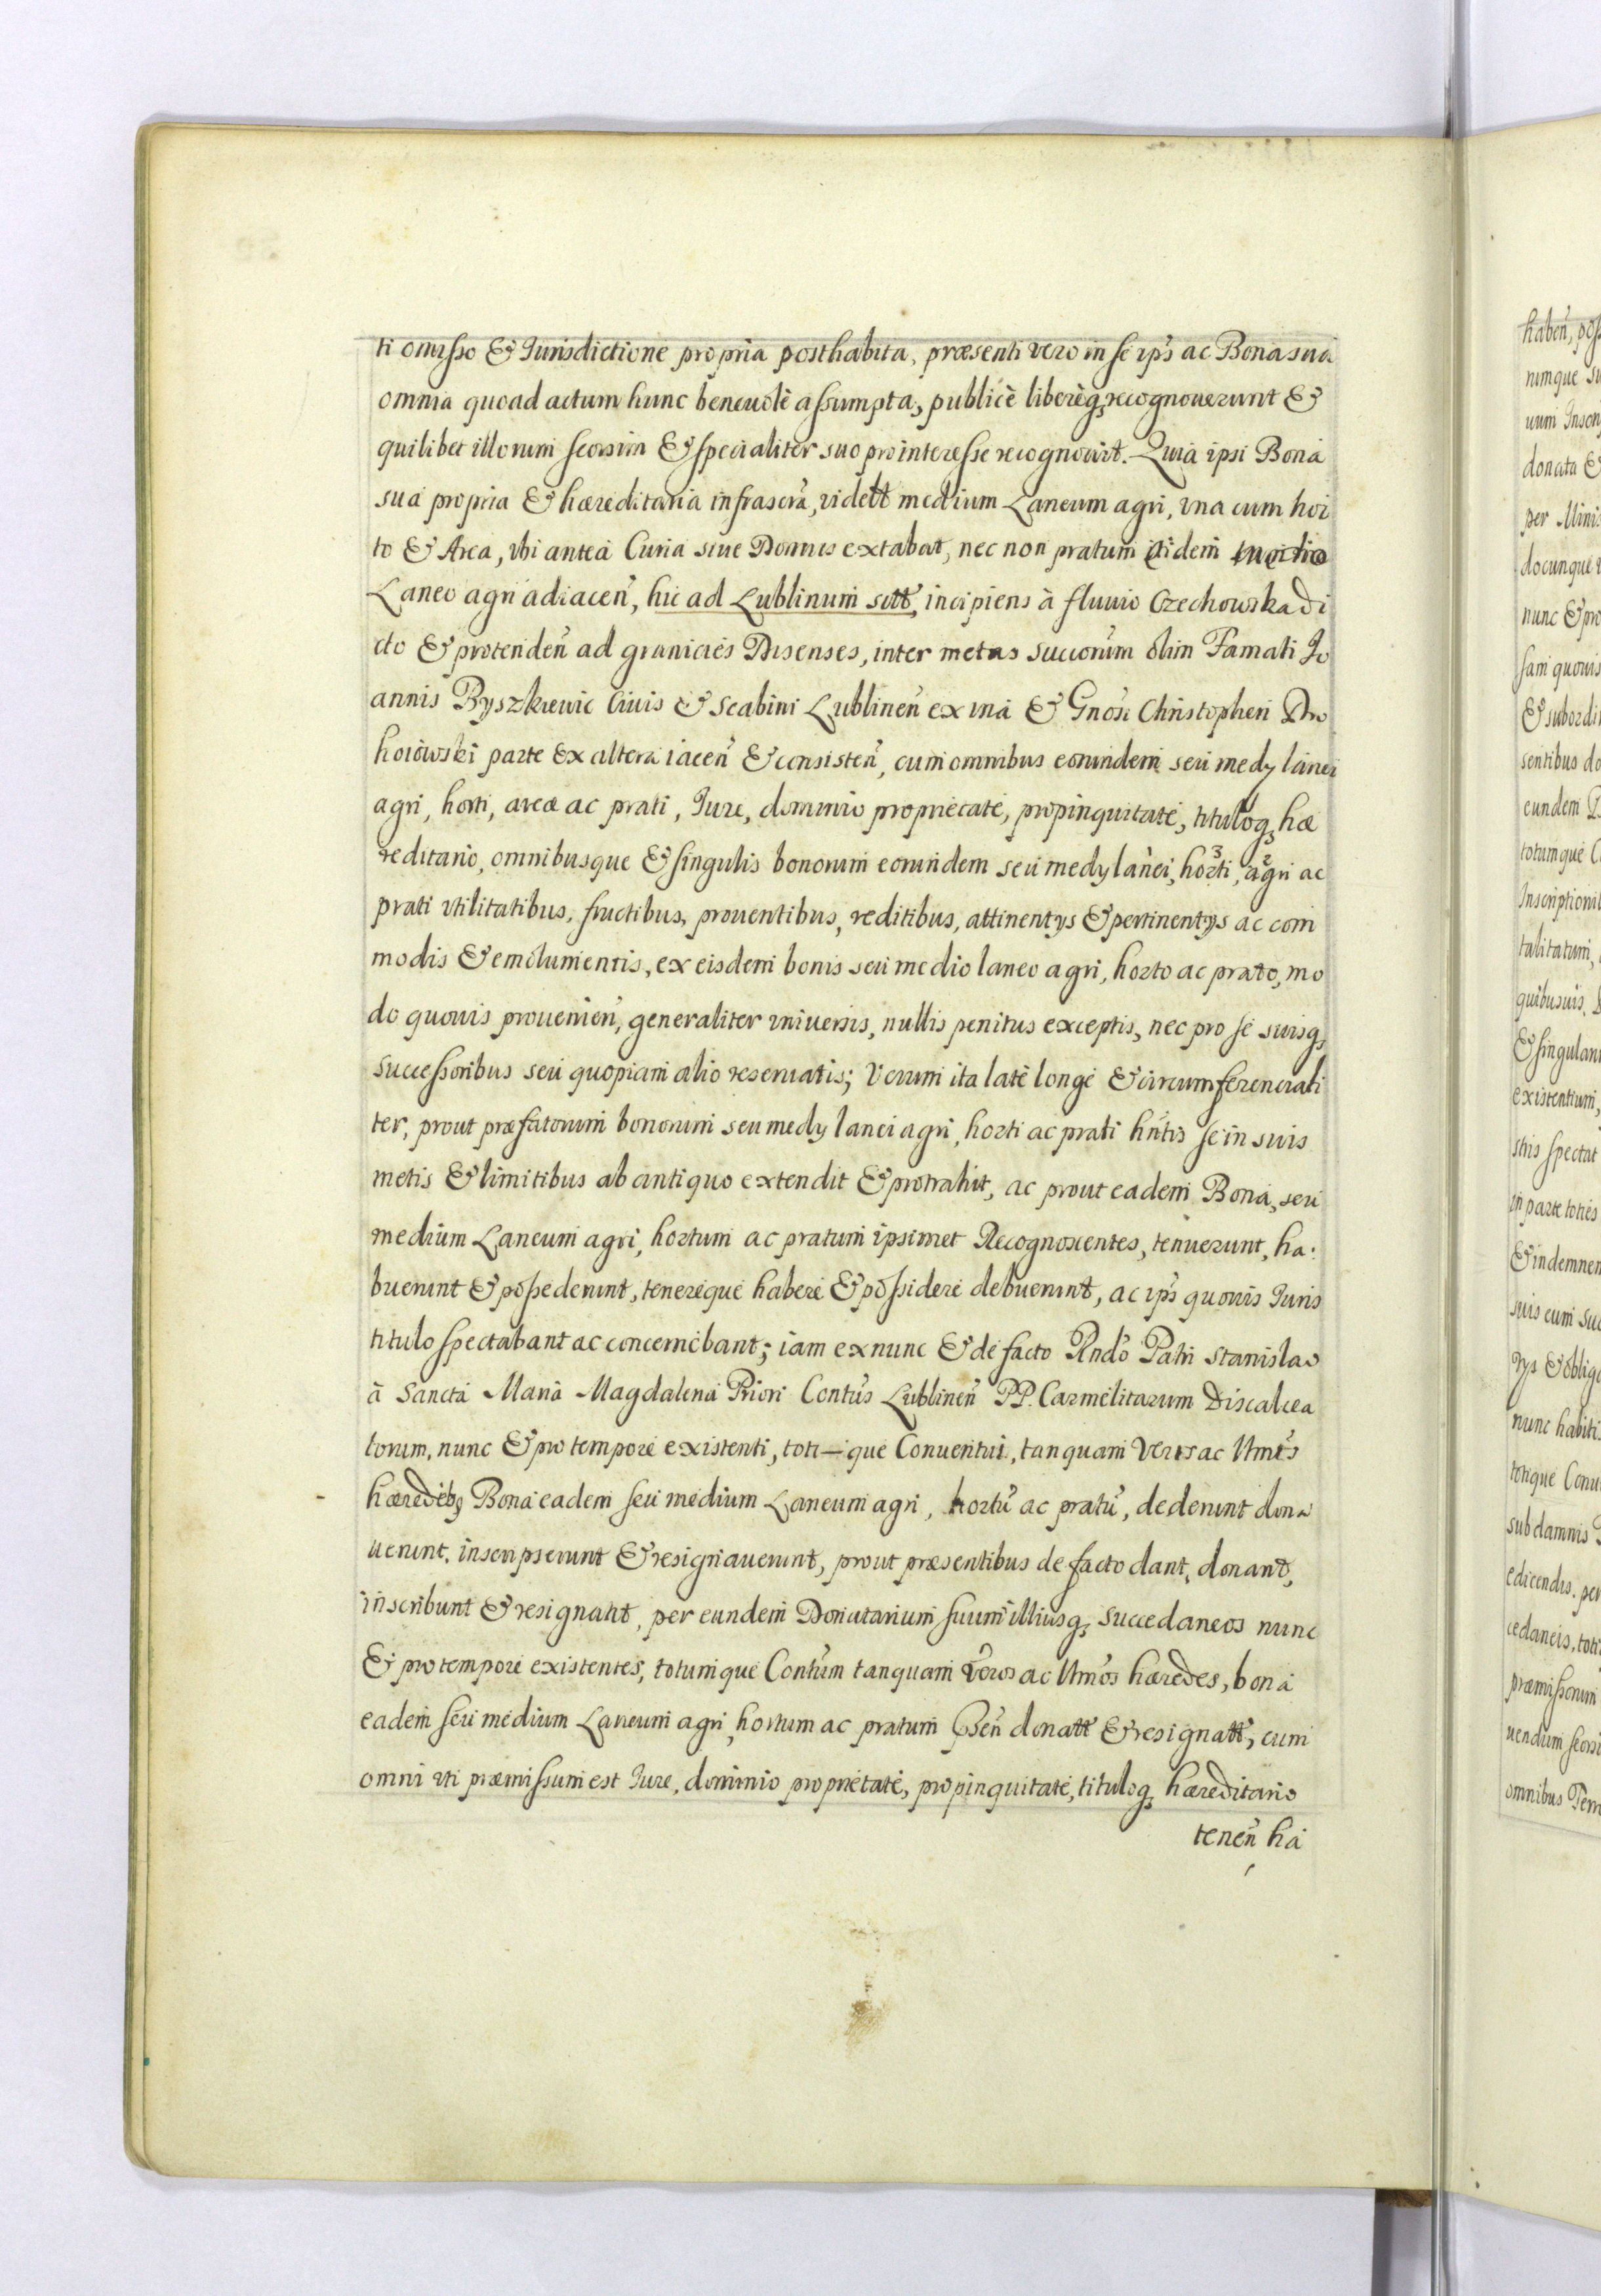 ti omisso & Jurisdictione propria posthabita, præsenti vero in se ips̃ ac Bona sua
omnia quoad actum hunc beneuolè assumpta, publicè liberèq, recognouerunt &
quilibet illorum seorsim & specialiter suo pro interesse recognouit. Quia ipsi Bona
sua propria & hæreditaria infrascr̃a, vidett medium Laneum agri, vna cum hor
to & Area, vbi antea Curia siue Domus extabat, nec non pratum eidem medio
Laneo agri adiaceñ, hic ad Lublinum sitt, incipiens à fluuio Czechowska di
cto & protendeñ ad granicies Disenses, inter metas succorum olim Famati Jo
annis Byszkiewic Ciuis & Scabini Lublineñ ex vna & Gnõsi Christopheri Dro
hoiowski parte ex altera iaceñ & consisteñ, cum omnibus eorundem seu medy lanei
agri, horti, areæ ac prati, Jure, dominio proprietate, propinquitate, tituloq, hæ
reditario, omnibusque & singulis bonorum eorundem seu medy lanei, horti, agri ac
prati vtilitatibus, fructibus, prouentibus, reditibus, attinentys & pertinentys ac com
modis & emolumentis, ex eisdem bonis seu medio laneo agri, horto ac prato, mo
do quouis prouenieñ, generaliter vniuersis, nullis penitus exceptis, nec pro se suisq,
successoribus seu quopiam alio reseruatis; Verum ita latè longè & circumferenciali
ter, prout præfatorum bonorum seu medy lanei agri, horti ac prati hñtis se in suis
metis & limitibus ab antiquo extendit & protrahit, ac prout eadem Bona, seu
medium Laneum agri, hortum ac pratum ipsimet Recognoscentes, tenuerunt, ha:
buerunt & possederunt, tenereque habere & possidere debuerunt, ac ips̃ quouis Juris
titulo spectabant ac concernebant; iam ex nunc & de facto Rndõ Patri Stanislao
à Sancta Maria Magdalena Priori Contũs Lublineñ PP. Carmelitarum Discalcea
torum, nunc & pro tempore existenti, toti—que Conuentui, tanquam Veris ac Vtmĩs
hæredibq Bona eadem seu medium Laneum agri, hortũ ac pratũ, dederunt dona
uerunt, inscripserunt & resignauerunt, prout præsentibus de facto dant, donant,
inscribunt & resignant, per eundem Donatarium suum illiusq, succedaneos nunc
& pro tempore existentes, totumque Contũm tanquam Veros ac Vtmõs hæredes, bona
eadem seu medium Laneum agri, hortum ac pratum donatt & resignatt, cum
omni vti præmissum est Jure, dominio proprietate, propinquitate, tituloq, hæreditario
teneñ ha